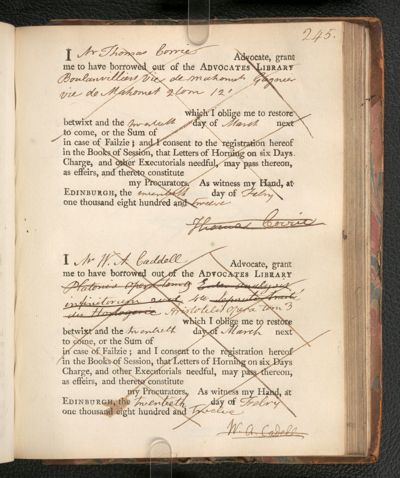 245.
I Mr Thomas Corrie Advocate, grant
me to have borrowed out of the ADVOCATES LIBRARY
Boulainvilliers Vie de Mahomet Gagnier
vie de Mahomet 2 tom 12o
which I oblige me to restore
betwixt and the twentieth day of March next
to come, or the Sum of
in case of Failzie; and I consent to the registration hereof
in the Books of Session, that Letters of Horning on six Days
Charge, and other Executorials needful, may pass thereon,
as effeirs, and thereto constitute
my Procurators. As witness my Hand, at
EDINBURGH, the twentieth day of Febry
one thousand eight hundred and twelve
Thomas Corrie
I Mr W. A. Caddell Advocate, grant
me to have borrowed out of the ADVOCATES LIBRARY
Platonis opera tom
infinitorum 4to
des Horlogerie Aristotelis opera tom 3
which I oblige me to restore
betwixt and the twentieth day of March next
to come, or the Sum of
in case of Failzie; and I consent to the registration hereof
in the Books of Session, that Letters of Horning on six Days
Charge, and other Executorials needful, may pass thereon,
as effeirs, and thereto constitute
my Procurators. As witness my Hand, at
EDINBURGH, the twentieth day of Febry
one thousand eight hundred and twelve
W. A. Cadell